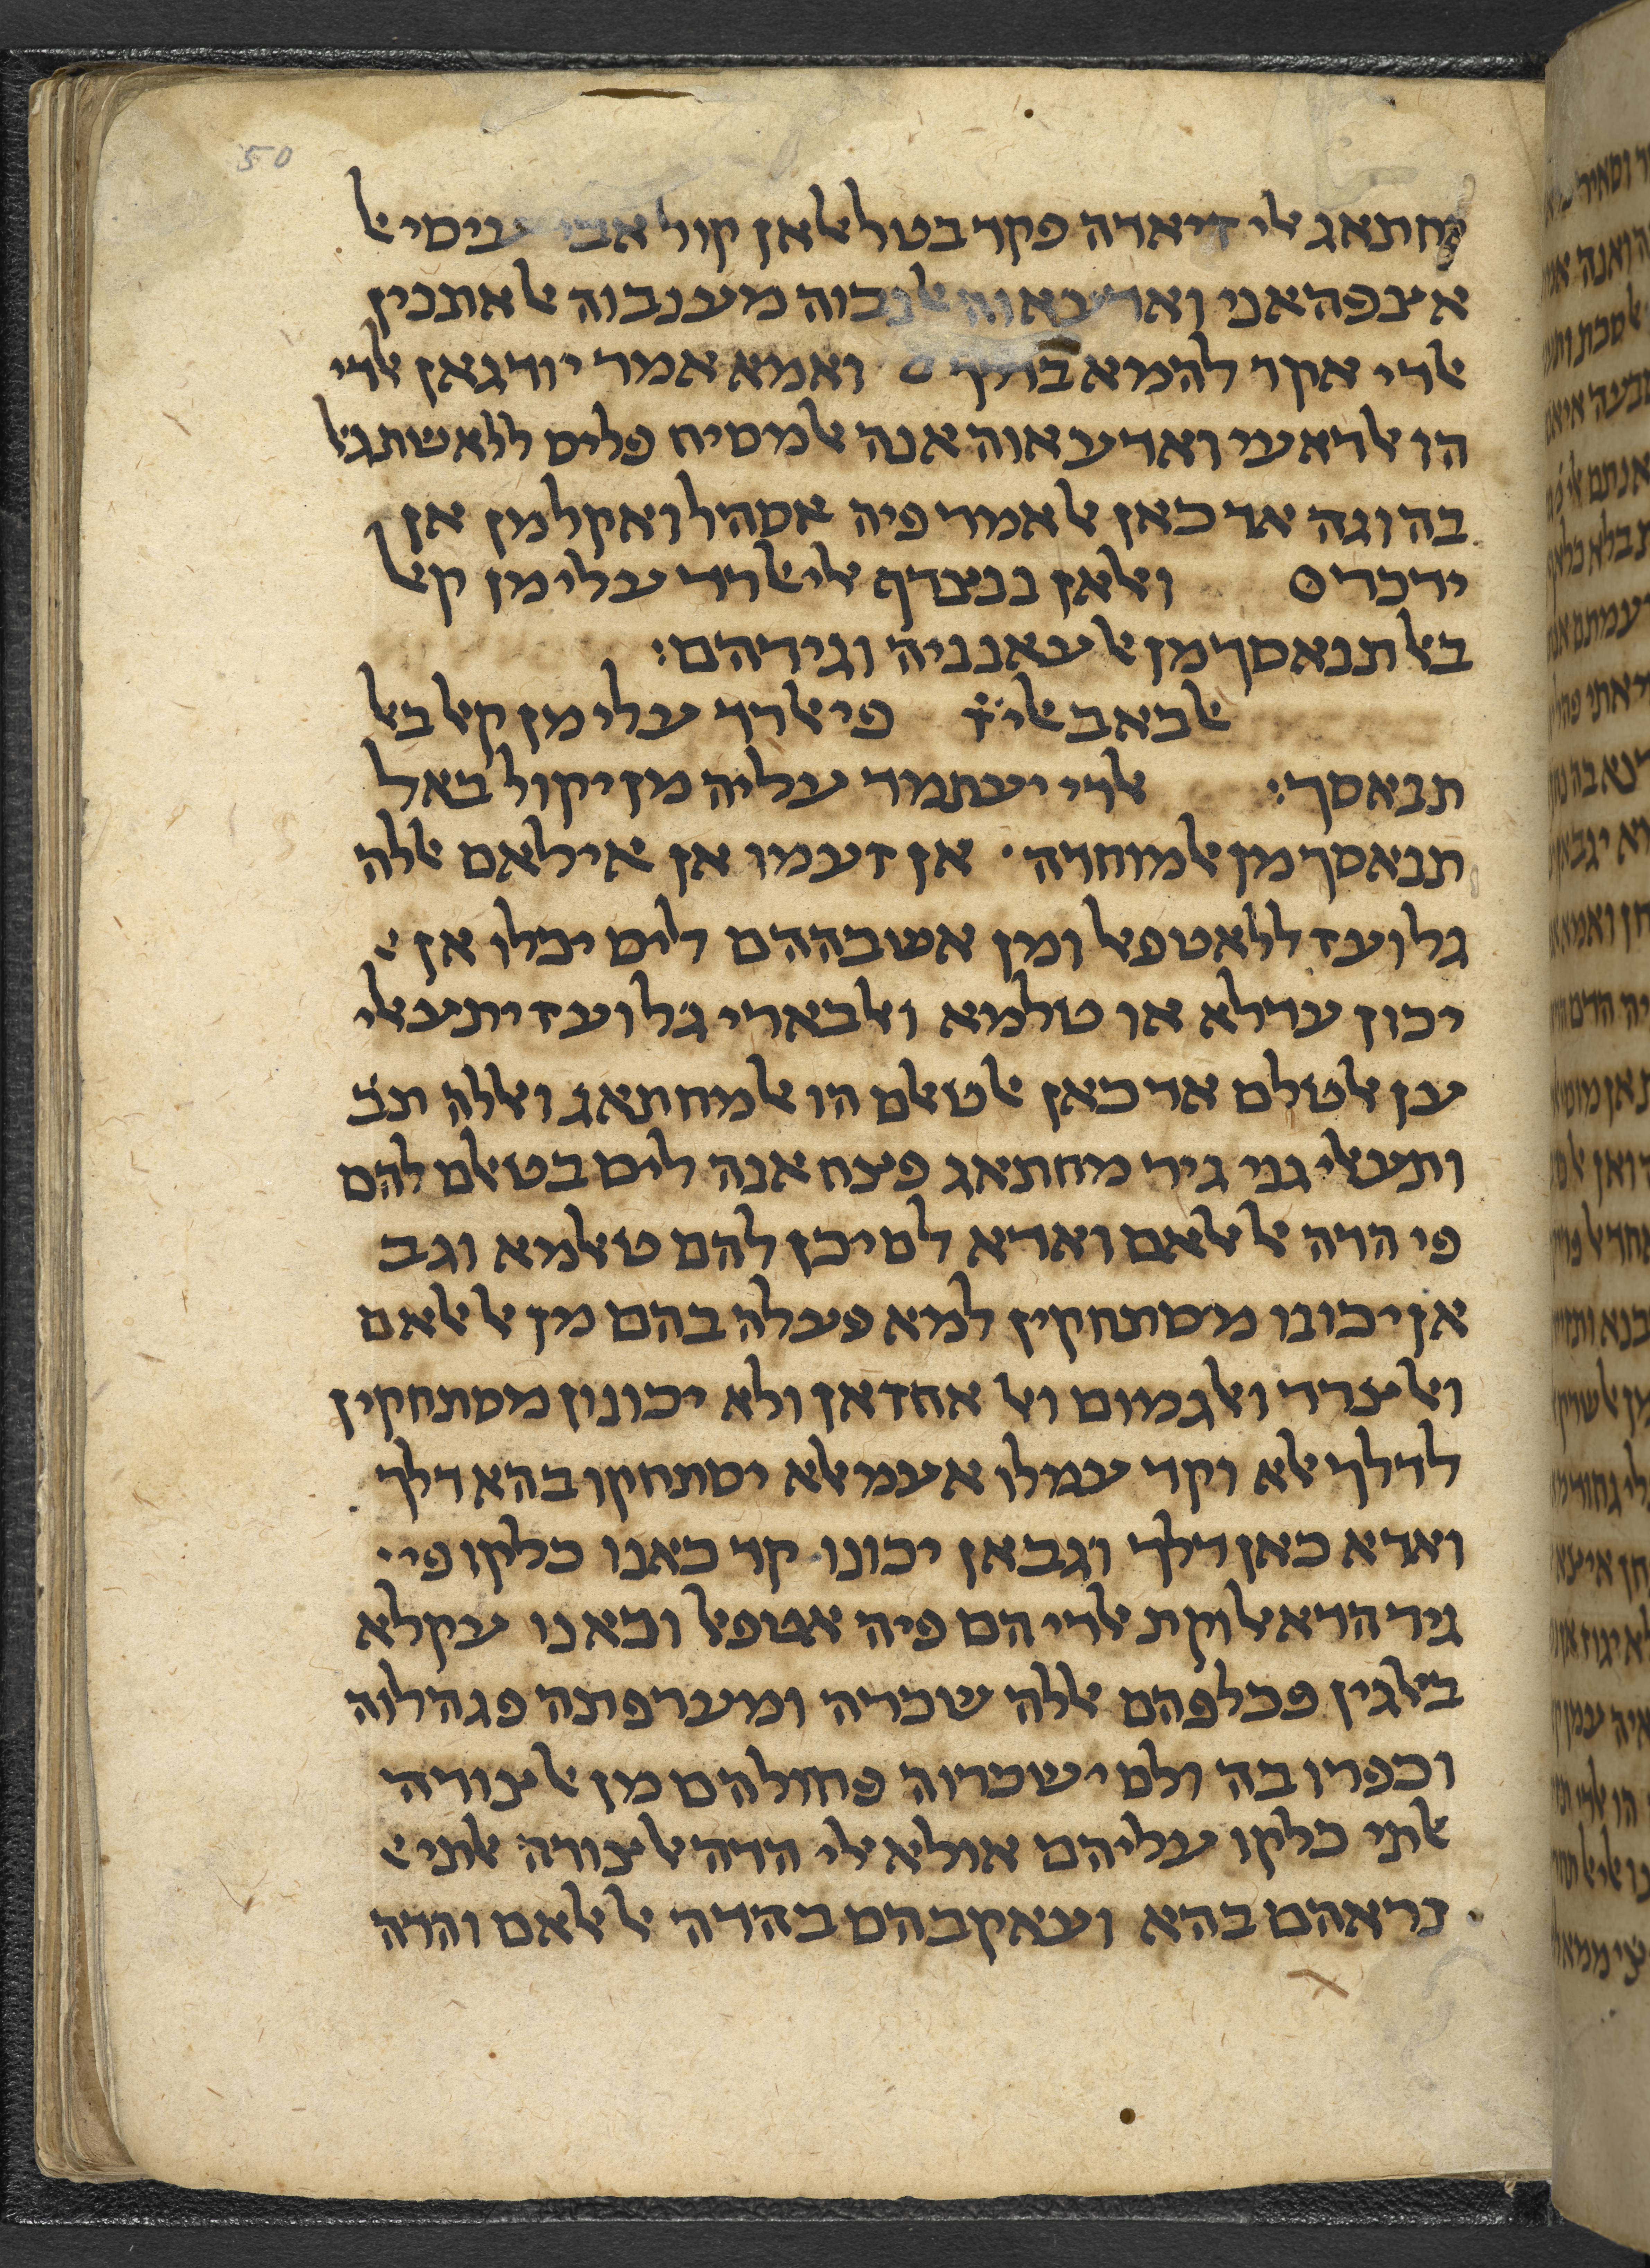 50
יחתאג אלי זיאדה פקד בטל אלאן קול אבי עיסי אל
אצפהאני ואדעאוה אלנבוה מע נבוה אלאתנין
אלדי אקר להמא בדלך ואמא אמר יודגאן אלדי
הו אלראעי ואדעאוה אנה אלמסיח פליס ללאשתגאל
בה וגה אד כאן אלאמר פיה אסהל ואקל מן אן
ידכר ס ואלאן ננצרף אלי אלרד עלי מן קאל
באלתנאסך מן אלעאנניה וגירהם:
אלבאב אלי פי אלרד עלי מן קאל באל
תנאסך: אלדי יעתמד עליה מן יקול באל
תנאסך מן אלמוחדה · אן זעמו אן אילאם אללה
גל ועז ללאטפאל ומן אשבההם ליס יכלו אן א
יכון עדלא או טלמא ואלבארי גל ועז יתעאלי
ען אלטלם אד כאן אלטאלם הו אלמחתאג ואללה תב
ותעאלי גני גיר מחתאג פצח אנה ליס בטאלם להם
פי הדה אלאלאם ואדא לם יכן להם טאלמא וגב
אן יכונו מסתחקין למא פעלה בהם מן אלאלאם
ואלצרר ואלגמום ואלאחזאן ולא יכונון מסתחקין
לדלך אלא וקד עמלו אעמאלא יסתחקו בהא דלך
ואדא כאן דלך וגב אן יכונו קד כאנו כלקו פי
גיר הדא אלוקת אלדי הם פיה אטפאל וכאנו עקלא
באלגין פכלפהם אללה שכרה ומערפתה פגהלוה
וכפרו בה ולם ישכרוה פחולהם מן אלצורה
אלתי כלקו עליהם אולא אלי הדה אלצורה אלתי א
נראהם בהא ועאקבהם בהדה אלאלאם והדה